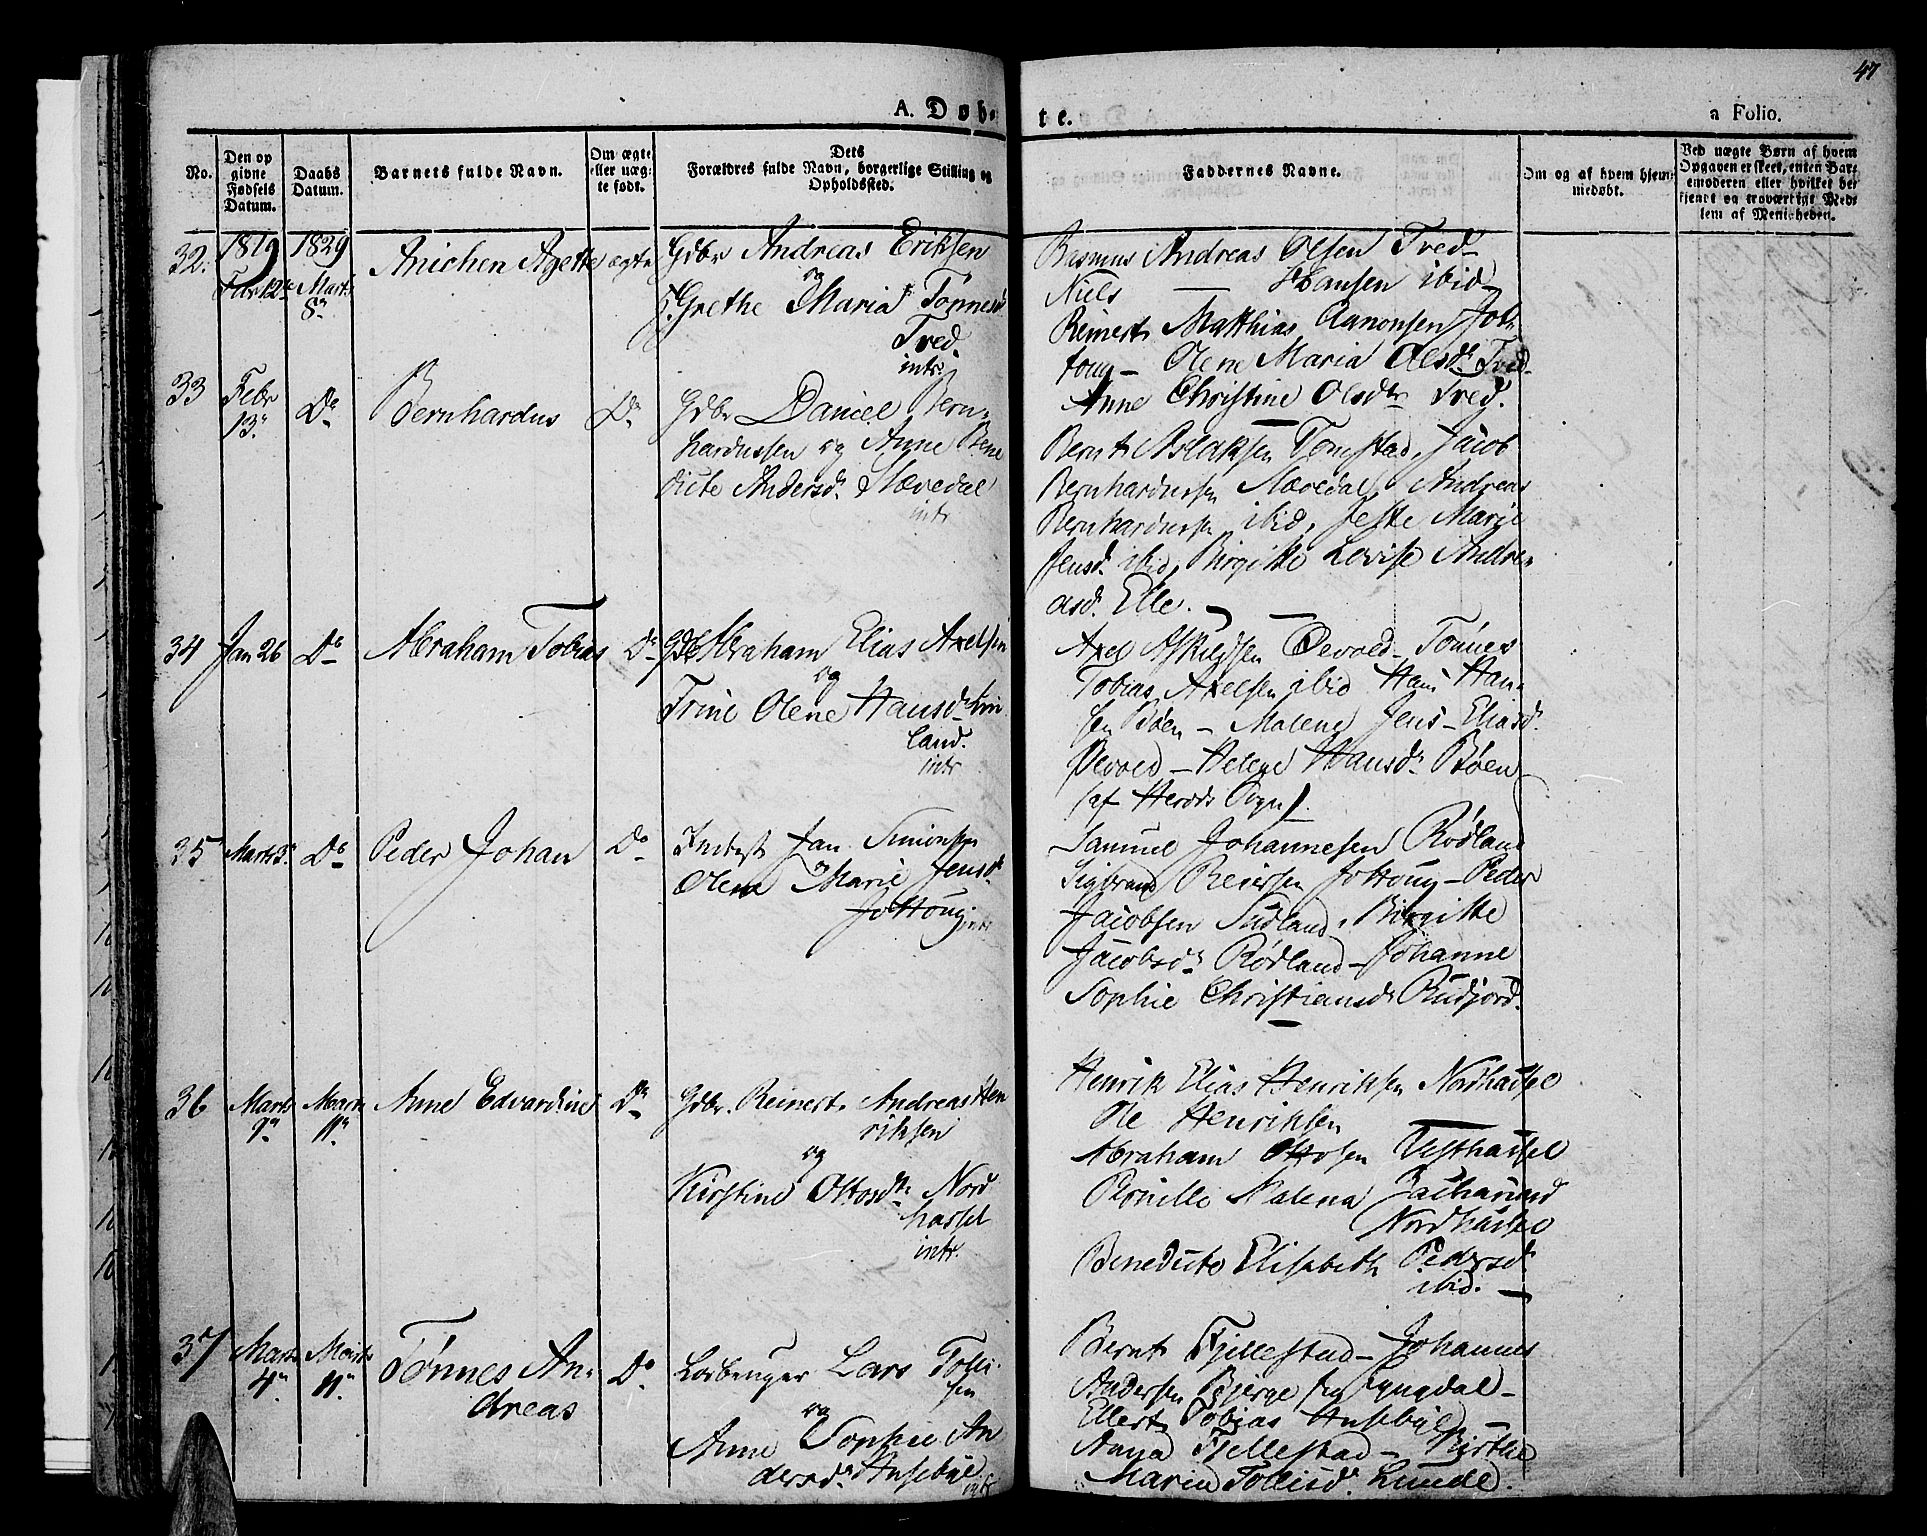 47
A. Døb-
te.
a Folio.
No.
Den op
givne
Fødsels
Datum.
Daabs
Datum.
Barnets fulde Navn.
Om ægte
eller uæg-
te født.
Dets
Forældres fulde Navn, borgerlige Stilling og
Opholdssted.
Faddernes Navne.
Om og af hvem hjem-
medøbt.
Ved uægte Børn af hvem
Opgaven er skeet, enten Bar-
nemoderen eller hvilket be-
kjendt og troværdigt Med-
lem af Menigheden.
32.
1819
12
1829
Marts
8
Anichen Agette
ægte
Gdbr Andreas Eriksen
og
Grethe Maria Tønnesd
Tved
intr.
Rasmus Andreas Olsen Tved
Niels — Hansen ibid
Reinert Matthias Aanonsen Jot-
toug – Olene Maria Olsd. Tved
Anne Christine Olsdtr Tved.
33
Febr
13.
Do
Bernhardus
Do
Gdbr Daniel Bern-
hardussen og Anne Bene
dicte Andersd. Slævedal
intr
Bernt Aslaksen Tomstad, Jacob
Bernhardussen Slævedal, Andreas
Bernhardussen ibid, Marie
Jensd. ibid, Birgitte Lovise Andre-
asd. Elle.
34
Jan 26
Do
Abraham Tobias
Do
Gdbr Abraham Elias Axelsen
og
Trine Olene Hansd
land.
intr
Axel Øevold – Tønnes
Tobias Axelsen ibid Hans Han-
sen Bøen – Malene Jens-Eliasd.
Øevold – Helene Hansd. Bøen
(af Herods Sogn).
35
Marts 3
Do
Peder Johan
Do
Inderst Jan Simonsen
og
Olene Marie Jensd.
Jottoug intr
Samuel Johannesen Rødland
Sigbrand Reiersen Jottoug – Peder
Jacobsen Sudland, Birgitte
Jacobsd. Rødland – Johanne
Sophie Christiansd. Rudjord.
36
Marts
9
Marts
11
Anne Edvardine
Do
Gdbr. Reinert Andreas Hen
riksen
og
Kirstine Ottosdtr Nord
hassel
intr.
Henrik Elias Henriksen Nordhassel
Ole Henriksen
Abraham Ottosen Vesthassel
Pernille Malena Zachariasd
Nordhassel
Benedicte Elisabeth Pedersd
ibid.
37
Marts
4
Marts
11
Tønnes An-
dreas
Do
Losbruger Lars Tolli-
sen
og
Anne Sophie An
dersd. Husebye
intr
Bernt Fjellestad – Johannes
Andersen Bjerge fra Lyngdal –
Ellert Tobias Husebye –
Anna Fjellestad – Birthe
Maria Tollisd. Lunde.